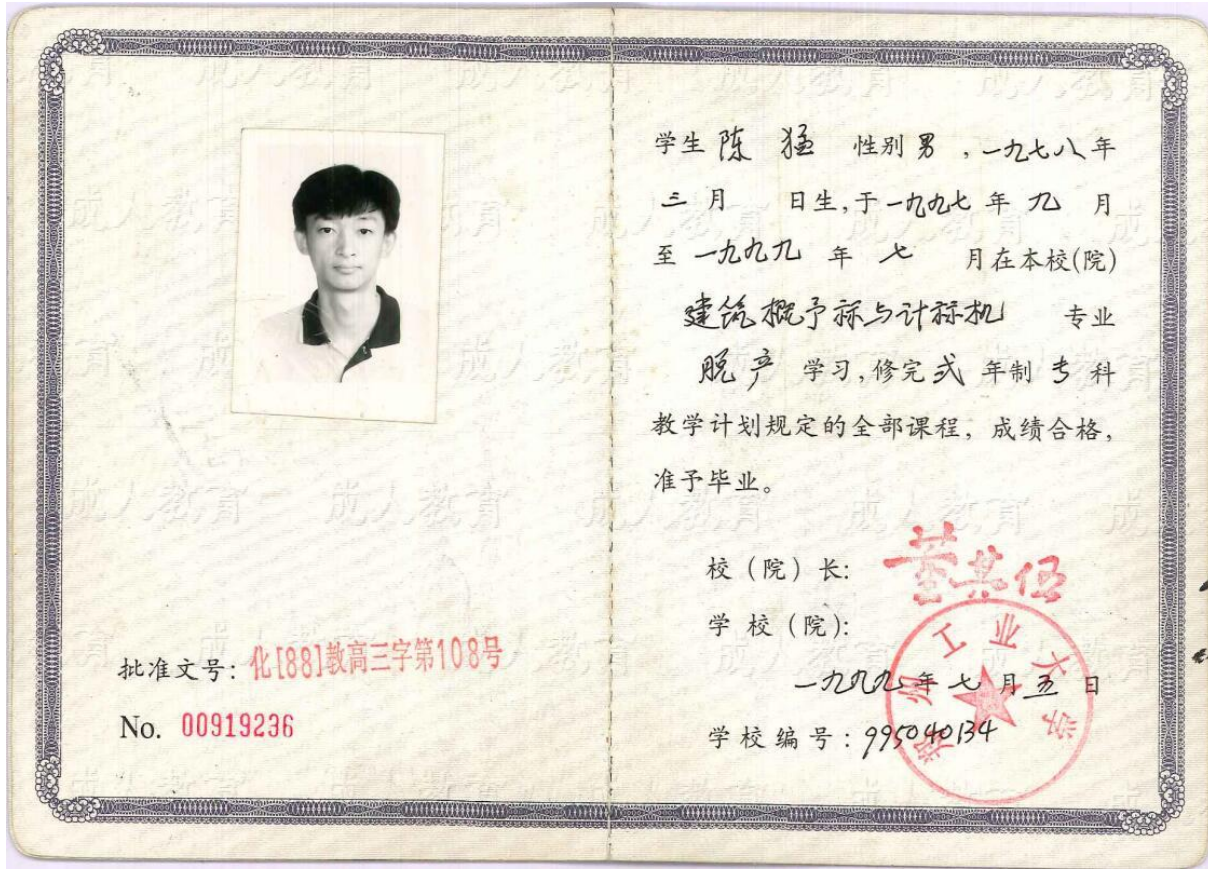 批准文号: 化[88]教高三字第108号
No. 00919236
学生 陈 猛 性别 男 , 一九七八年
三 月 日生,于一九九七 年 九 月
至 一九九九 年 七 月在本校(院)
建筑概予标与计标机 专业
脱产 学习, 修完 弍 年制 专 科
教学计划规定的全部课程, 成绩合格,
准予毕业。
校 (院) 长: 董其伍
学 校 (院):
郑州工业大学
一九九九 年 七 月 五 日
学校编号: 995040134
成人教育